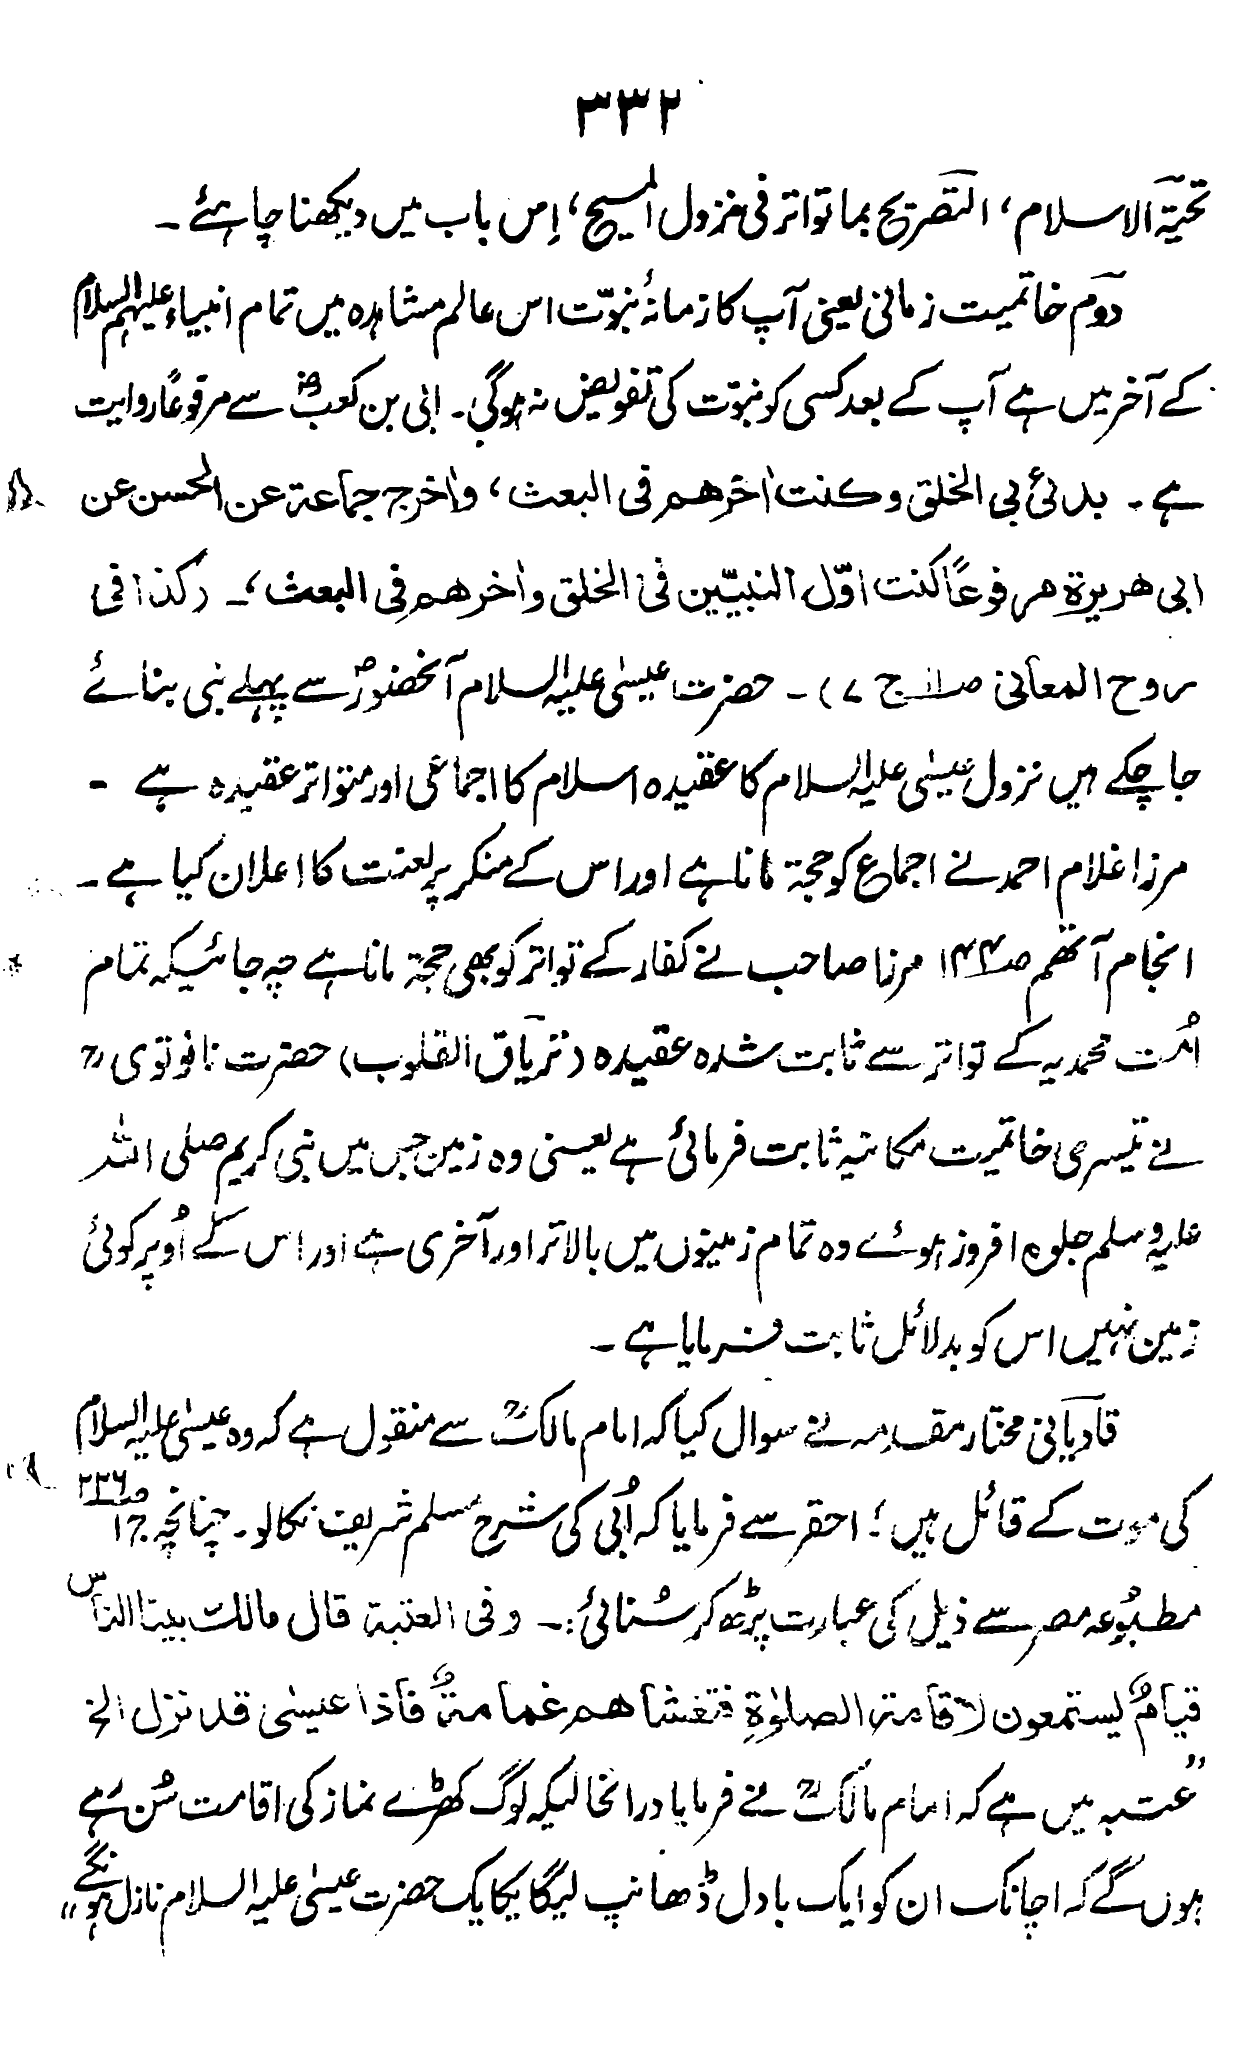 ۳۳۲
تحیۃ الاسلام، التصریح بما تواتر فی نزول المسیح، اِس باب میں دیکھنا چاہئے ۔
دوّم خاتمیت زمانی یعنی آپ کا زمانۂ نبوّت اس عالم مشاہدہ میں تمام انبیاء علیہم السلام
کے آخر میں ہے آپ کے بعد کسی کو نبوّت کی تفویض نہ ہوگی۔ ابی بن کعبؓ سے مرفوعًا روایت
ہے ۔ بدئ بی الخلق و کنت اٰخرهم فی البعث، واٰخرج جماعۃ عن الحسن عن
ابی هریرۃ مرفوعًا کنت اوّل النبیّین فی الخلق واٰخرهم فِی البعث،۔ (کذا فی
روح المعانی صـ ج ۷) ۔ حضرت عیسیٰ علیہ السلام آنحضورؐ سے پہلے نبی بنائے
جا چکے ہیں نزول عیسیٰ علیہ السلام کا عقیدہ اسلام کا اجماعی اور متواتر عقیدہ ہے ۔
مرزا غلام احمد نے اجماع کو حجۃ مانا ہے اور اس کے منکر پر لعنت کا اعلان کیا ہے ۔
انجام آتھم صـ۱۴۴ مرزا صاحب نے کفار کے تواتر کو بھی حجۃ مانا ہے چہ جائیکہ تمام
اُمّت محمدیہ کے تواتر سے ثابت شدہ عقیدہ (تریاق القلوب) حضرت نانوتویؒ
نے تیسری خاتمیت مکانیہ ثابت فرمائی ہے یعنی وہ زمین جس میں نبی کریم صلی اللہ
علیہ وسلم جلوہ افروز ہوئے وہ تمام زمینوں میں بالاتر اور آخری ہے اور اس کے اُوپر کوئی
زمین نہیں اس کو بدلائل ثابت فرمایا ہے ۔
قادیانی مختار مقدمہ نے سوال کیا کہ امام مالکؒ سے منقول ہے کہ وہ عیسیٰ علیہ السلام
کی موت کے قائل ہیں؛ احقر سے فرمایا کہ اُبی کی شرح مسلم شریف نکالو۔ چنانچہ ج۱ صـ۲۲۶
مطبوُعہ مصر سے ذیل کی عبارت پڑھ کر سُنائی:۔ وفی العتبیۃ قال مالک بینا الناس
قیامٌ یستمعون لاقامۃ الصلوٰۃِ فتغشاهم غمامۃٌ فاذا عیسیٰ قد نزل الخ
”عتبیہ میں ہے کہ امام مالکؒ نے فرمایا درانحالیکہ لوگ کھڑے نماز کی اقامت سُن رہے
ہوں گے کہ اچانک ان کو ایک بادل ڈھانپ لیگا یکایک حضرت عیسیٰ علیہ السلام نازل ہونگے“